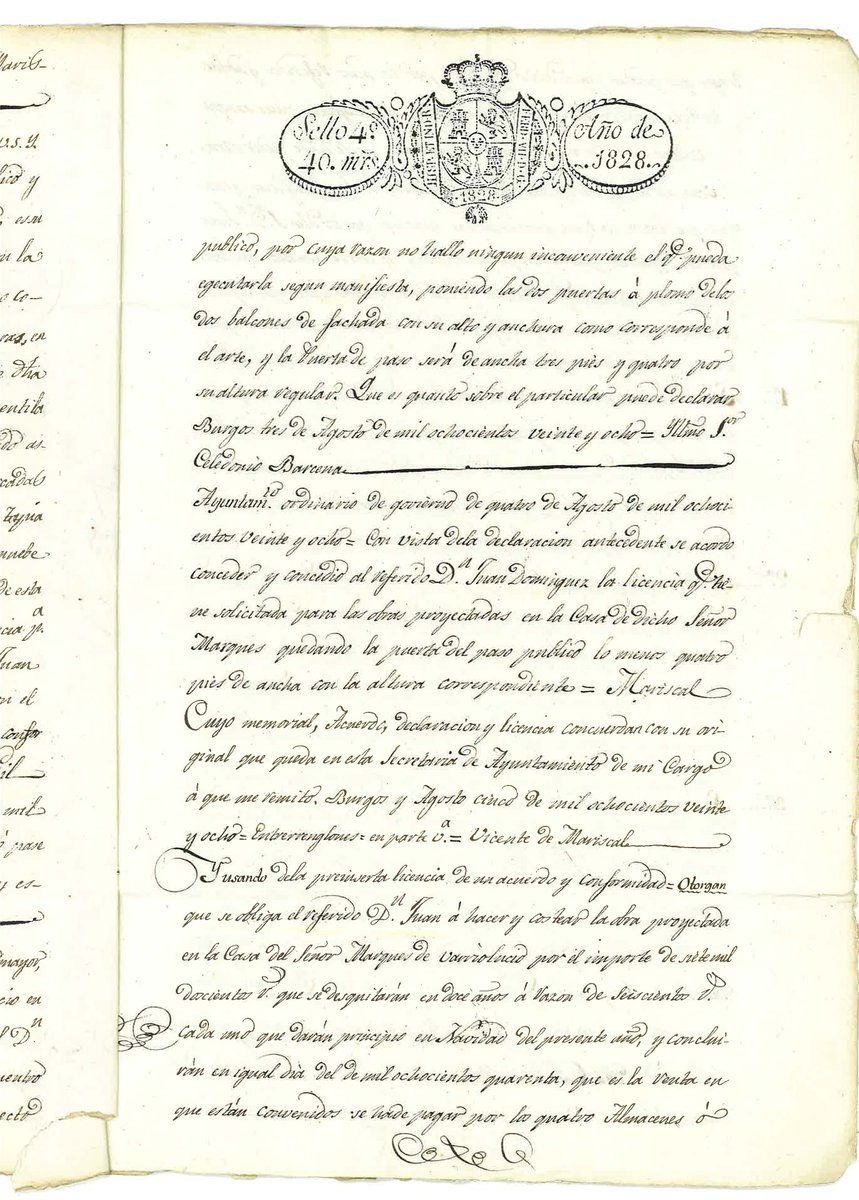 Sello 4º
40. mrs
HISP. ET IND. R
1828
Año de
1828.
publico, por cuya razon no hallo ningun incombeniente el qe. pueda
egecutarla segun manifiesta, poniendo las dos puertas á plomo delos
dos balcones de fachada con su alto y anchura como corresponde á
el arte, y la Puerta de paso será de ancha tres pies y quatro por
su altura regular. Que es quanto sobre el particular puede declarar
Burgos tres de Agosto de mil ochocientos veinte y ocho = Yltmo Sor.
Celedonio Barcena
Ayuntamto. ordinario de govierno de quatro de Agosto de mil ochoci
entos veinte y ocho = Con vista dela declaracion antecedente se acordo
conceder y concedio al referido Dn. Juan Dominguez la licencia qe. tie-
ne solicitada para las obras proyectadas en la Casa de dicho Señor
Marques quedando la puerta del paso publico lo menos quatro
pies de ancha con la altura correspondiente = Mariscal
Cuyo memorial, Acuerdo, declaracion y licencia concuerdan con su ori-
ginal que queda en esta Secretaria de Ayuntamiento de mi Cargo
á que me remito. Burgos y Agosto cinco de mil ochocientos veinte
y ocho = Entrerrenglones = en parte va. = Vicente de Mariscal
Y usando dela preinserta licencia de un acuerdo y conformidad = Otorgan
que se obliga el referido Dn. Juan á hacer y costear la obra proyectada
en la Casa del Señor Marques de Varriolucio por el importe de siete mil
doscientos rs. que se desquitarán en doce años á razon de seiscientos rs.
cada uno que darán principio en Navidad del presente año, y conclui-
rán en igual dia del de mil ochocientos quarenta, que es la renta en
que están convenidos se ha de pagar por los quatro Almacenes ó